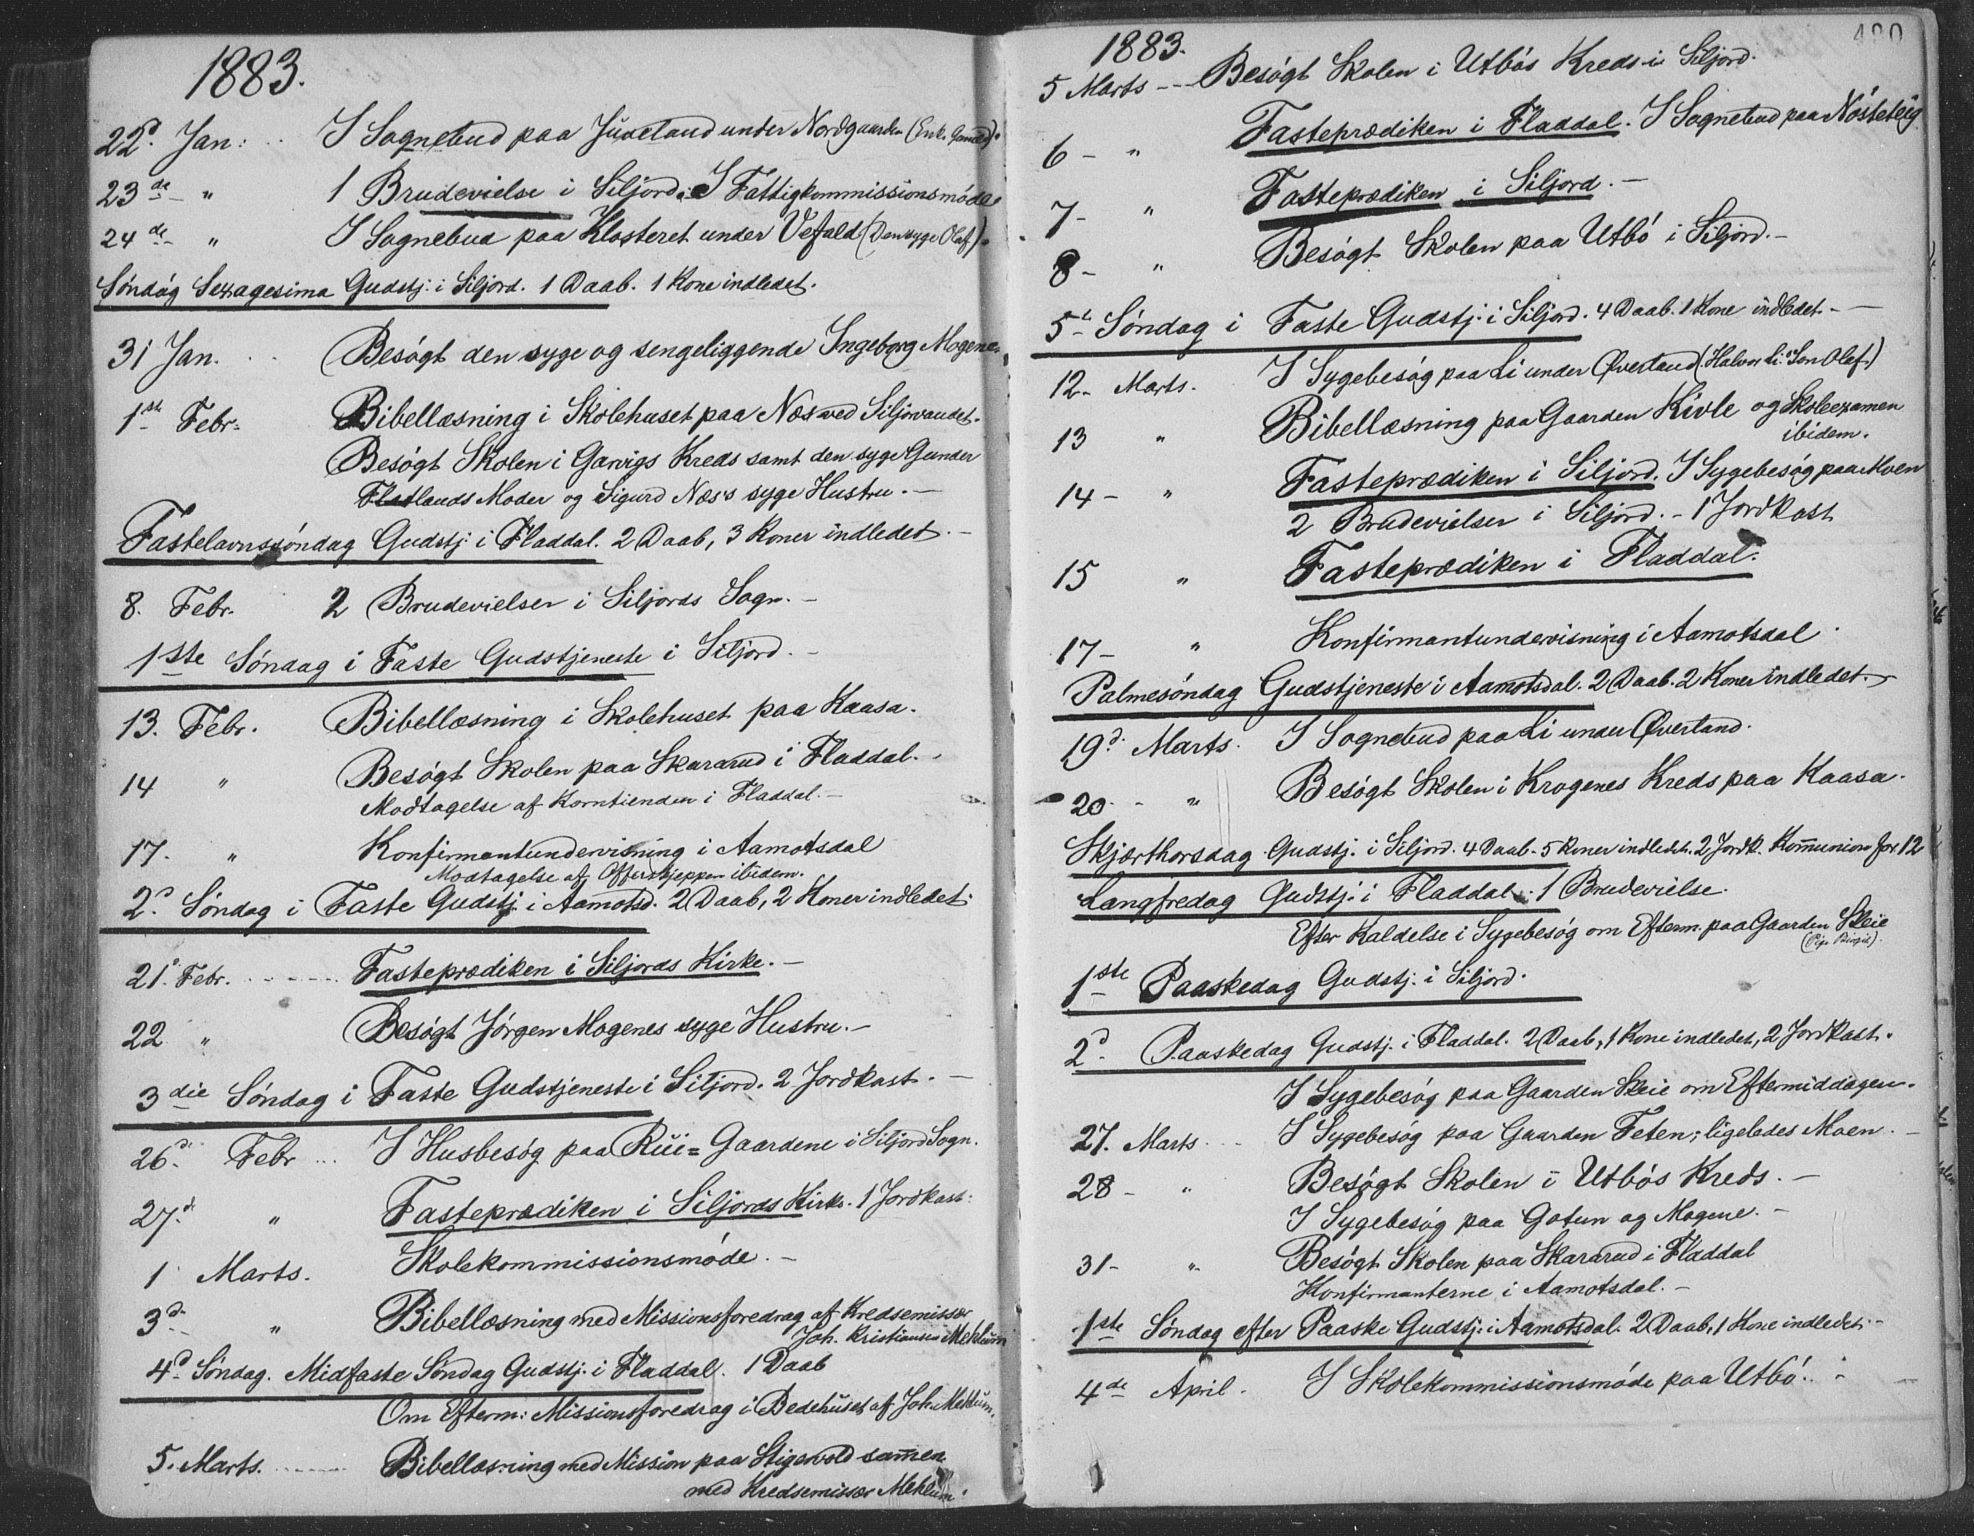 1883.
22d Jan: .. I Sognebud paa Juveland under Nordgaarden (Enk. Gunild).
23de " 1 Brudevielse i Siljord. I Fattigkommissionsmøde
24de " I Sognebud paa Klosteret under Vefald (Den syge Olaf).
Søndag Sexagesima Gudstj: i Siljord. 1 Daab. 1 Kone indledet.
31 Jan. .. Besøgt den syge og sengeliggende Ingeborg Mogene.
1st Febr. Bibellæsning i Skolehuset paa Næs ved Siljorvandet.
Besøgt Skolen i Garvigs Kreds samt den syge Gunder
Flatlands Moder og Sigurd Næs's syge Hustru. —
Fastelavnssøndag Gudstj i Fladdal. 2 Daab, 3 Koner indledet. —
8. Febr. 2 Brudevielser i Siljords Sogn. —
1ste Søndag i Faste Gudstjeneste i Siljord. —
13. Febr. Bibellæsning i Skolehuset paa Kaasa.
14 " Besøgt Skolen paa Skararud i Fladdal. -
Modtagelse af Korntienden i Fladdal. —
17. " Konfirmantundervisning i Aamotsdal
Modtagelse af Offerskjeppen ibidem.
2d Søndag i Faste Gudstj i Aamotsd. 2 Daab, 2 Koner indledet.
21d Febr. ------- Fasteprædiken i Siljords Kirke. —
22 " Besøgt Jørgen Mogenes syge Hustru. —
3die Søndag i Faste Gudstjeneste i Siljord. 2 Jordkast. —
26d. Febr ... I Husbesøg paa Rui= Gaardene i Siljord Sogn.
27.d " Fasteprædiken i Siljords Kirke. 1 Jordkast.
1 Marts. Skolekommissionsmøde. —
3d " Bibellæsning med Missionsforedrag af Kredsemissær
Joh. Kristiansen Mehlum
4d Søndag. Midfaste Søndag Gudstj: i Fladdal. 1 Daab
Om Efterm: Missionsforedrag i Bedehuset af Joh. Mehlum.
5. Marts. ------- Bibellæsning med Mission paa Stigervold sammen
med Kredsemissær Mehlum.
420
1883.
5 Marts --- Besøgt Skolen i Utbøs Kreds i Siljord.
6 - " Fasteprædiken i Fladdal. I Sognebud paa Nøsteteig
7 - " Fasteprædiken i Siljord. —
8 - " Besøgt Skolen paa Utbø i Siljord. —
5t Søndag i Faste Gudstj: i Siljord. 4 Daab. 1 Kone indledet. —
12- Marts. I Sygebesøg paa Li under Øverland (Halvor Li's Søn Olaf)
13 " Bibellæsning paa Gaarden Kivle og Skoleexamen
ibidem.
14 - " Fasteprædiken i Siljord. I Sygebesøg paa Moen
2 Brudevielser i Siljord. - 1 Jordkast
15 " Fasteprædiken i Fladdal.
17- " Konfirmantundervisning i Aamotsdal
Palmesøndag Gudstjeneste i Aamotsdal. 2 Daab. 2 Koner indledet. —
19d. Marts. I Sognebud paa Li under Øverland.
20 - " Besøgt Skolen i Krogenes Kreds paa Kaasa.
Skjærthorsdag Gudstj. i Siljord. 4 Daab. 5 Koner indledet. 2 Jordk. Kommunion for 12
Langfredag Gudstj: i Fladdal. 1 Brudevielse.
Efter Kaldelse i Sygebesøg om Efterm. paa Gaarden Skeie
(Pige Birgit).
1ste Paaskedag Gudstj: i Siljord.
2d. Paaskedag Gudstj. i Fladdal. 2 Daab, 1 Kone indledet, 2 Jordkast.
I Sygebesøg paa Gaarden Skeie om Eftermiddagen.
27. Marts .. I Sygebesøg paa Gaarden Feten; ligeledes Moen. —
28 - " Besøgt Skolen i Utbøs Kreds. —
I Sygebesøg paa Gotun og Mogene. —
31- " Besøgt Skolen paa Skararud i Fladdal
Konfirmanterne i Aamotsdal. —
1ste Søndag efter Paaske Gudstj: i Aamotsdal. 2 Daab, 1 Kone indledet. —
4de April. I Skolekommissionsmøde paa Utbø. . -